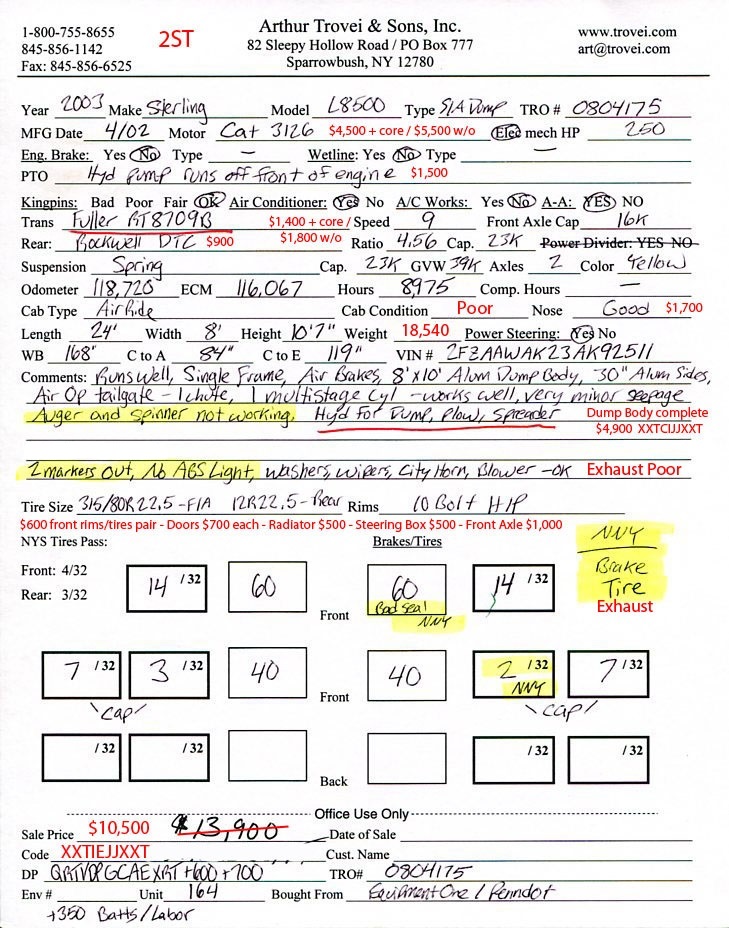 1-800-755-8655 2ST Arthur Trovei & Sons, Inc. www.trovei.com
845-856-1142 82 Sleepy Hollow Road / PO Box 777 art@trovei.com
Fax: 845-856-6525 Sparrowbush, NY 12780
Year 2003 Make Sterling Model L8500 Type S/A Dump TRO # 0804175
MFG Date 4/02 Motor Cat 3126 $4,500 + core / $5,500 w/o Elec mech HP 250
Eng. Brake: Yes No Type — Wetline: Yes No Type —
PTO Hyd pump runs off front of engine $1,500
Kingpins: Bad Poor Fair OK Air Conditioner: Yes No A/C Works: Yes No A-A: YES NO
Trans Fuller RT8709B $1,400 + core / Speed 9 Front Axle Cap 16K
Rear: Rockwell DTC $900 $1,800 w/o Ratio 4.56 Cap. 23K Power Divider: YES NO
Suspension Spring Cap. 23K GVW 39K Axles 2 Color Yellow
Odometer 118,720 ECM 116,067 Hours 8975 Comp. Hours —
Cab Type AirRide Cab Condition Poor Nose Good $1,700
Length 24' Width 8' Height 10'7" Weight 18,540 Power Steering: Yes No
WB 168" C to A 84" C to E 119" VIN # 2FZAAWAK23AK92511
Comments: Runs well, Single Frame, Air Brakes, 8'x10' Alum Dump Body, -30" Alum Sides,
Air Op tailgate - 1 chute, 1 multistage cyl - works well, very minor seepage
Auger and spinner not working. Hyd For Dump, Plow, Spreader Dump Body complete
$4,900 XXTCIJJXXT
2 markers out, No ABS Light, Washers, Wipers, City Horn, Blower -OK Exhaust Poor
Tire Size 315/80R22.5-F/A 12R22.5-Rear Rims 10 Bolt H/P
$600 front rims/tires pair - Doors $700 each - Radiator $500 - Steering Box $500 - Front Axle $1,000
NYS Tires Pass: Brakes/Tires NNY
Front: 4/32 14 /32 60 Front 60 14 /32 Brake
Rear: 3/32 Bad Seal Tire
NNY Exhaust
7 /32 3 /32 40 Front 40 2 /32 7 /32
NNY
\cap/ \cap/
/32 /32 Back /32 /32
Office Use Only
Sale Price $10,500 $13,900 Date of Sale
Code XXTIEJJXXT Cust. Name
DP QRTVDPGCAEXRT +600 +700 TRO# 0804175
Env # Unit 164 Bought From Equipment One / Penndot
+350 Batts/Labor